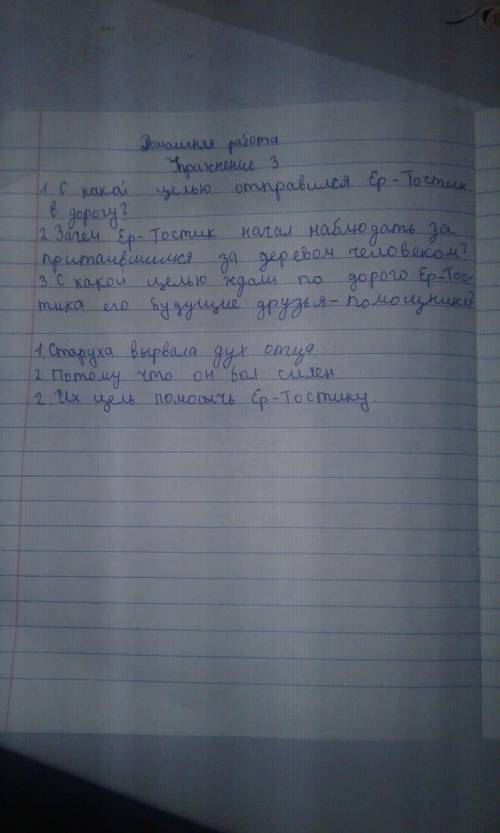 Домашняя работа
Упражнение 3
1. С какой целью отправился Ер-Тостик
в дорогу?
2. Зачем Ер-Тостик начал наблюдать за
притаившимся за деревом человеком?
3. С какой целью ждали по дороге Ер-Тос-
тика его будущие друзья-помощники
1. Старуха вырвала дух отца
2. Потому что он был силен
2. Их цель помоычь Ер-Тостику.